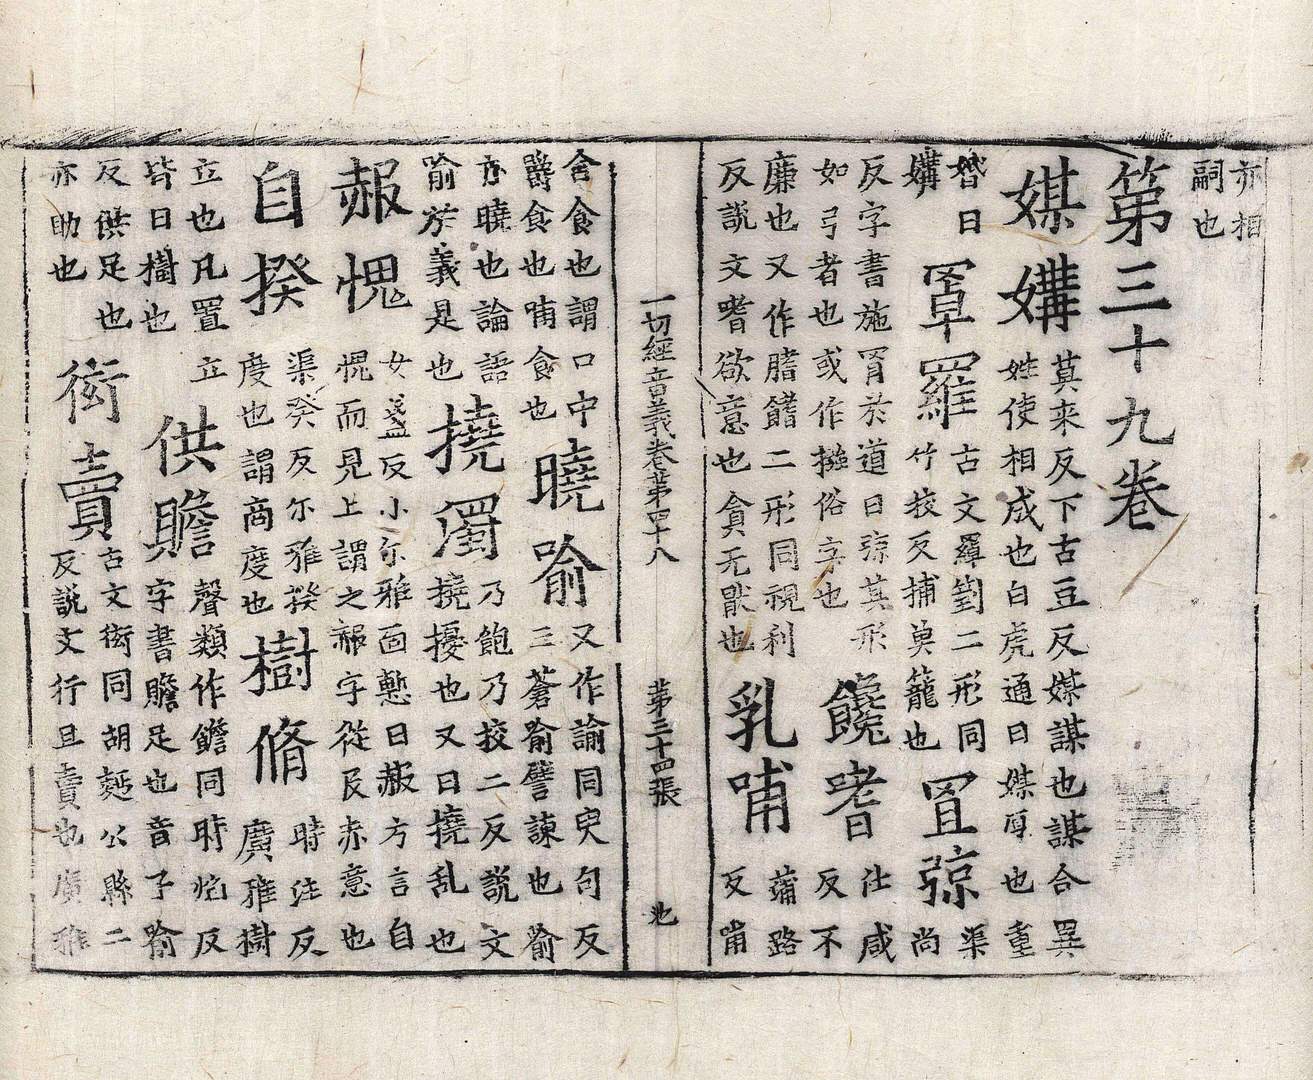 亦相
嗣也
第三十九卷
媒媾
莫来反下古豆反媒謀也謀合異
姓使相成也白虎通曰媒厚也重
婚曰
媾
罩羅
古文羄𦋇二形同
竹挍反捕魚籠也
罝弶
渠
尚
反字書施罥於道曰弶其形
如弓者也或作摾俗字也
饞嗜
仕咸
反不
廉也又作𦞯饎二形同視利
反説文嗜欲意也貪无猒也
乳哺
蒲路
反甯
一切經音義卷第四十八
第三十四張
池
含食也謂口中
爵食也哺食也
曉喻
又作諭同臾句反
三蒼喻譬諫也喻
亦曉也論語
喻於義是也
撓濁
乃飽乃挍二反説文
撓擾也又曰撓乱也
赧愧
女盞反小尔雅面慙曰赧方言自
愧而見上謂之赧字從𠬝赤意也
自揆
渠癸反尔雅揆
度也謂商度也
樹脩
時注反
廣雅樹
立也凡置立
皆曰樹也
供贍
聲類作贍同時焰反
字書贍足也音子喻
反供足也
亦助也
衒賣
古文衒同胡麫公縣二
反説文行且賣也廣雅